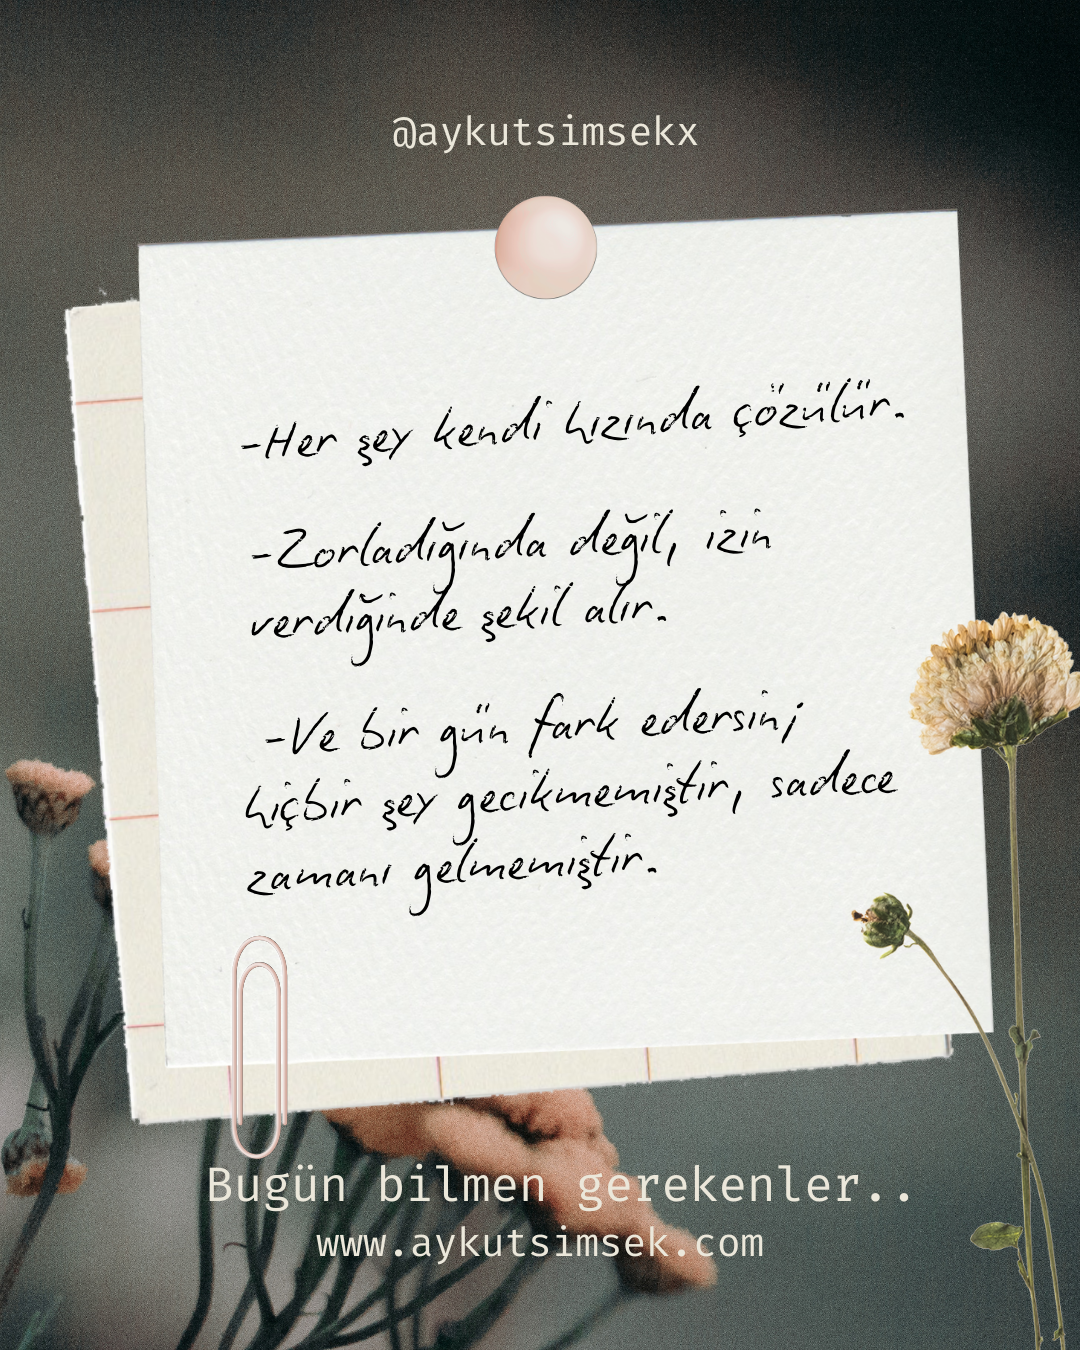 @aykutsimsekx
-Her şey kendi hızında çözülür.
-Zorladığında değil, izin
verdiğinde şekil alır.
-Ve bir gün fark edersin;
hiçbir şey gecikmemiştir, sadece
zamanı gelmemiştir.
Bugün bilmen gerekenler..
www.aykutsimsek.com